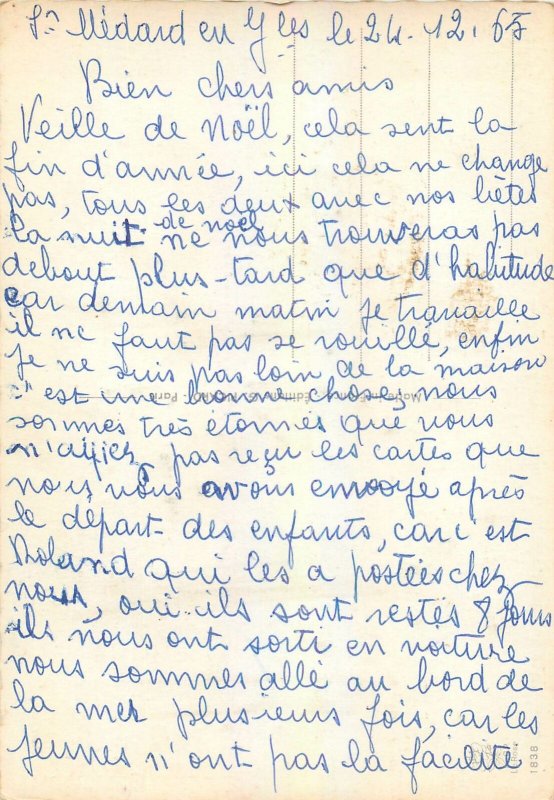 St Médard en Yles le 24.12.65
Bien chers amis
Veille de Noël, cela sent la
fin d'année, ici cela ne change
pas, tous les deux avec nos bêtes
La nuit de noel ne nous trouveras pas
debout plus-tard que d'habitude
car demain matin je travaille
il ne faut pas se rouillé, enfin
je ne suis pas loin de la maison
c'est une bonne chose, nous
sommes très étonnés que vous
n'ayiez pas reçu les cartes que
nous vous avons envoyé après
le départ des enfants, car c'est
Roland qui les a postées chez
nous, oui ils sont restés 8 jours
ils nous ont sorti en voiture
nous sommes allé au bord de
la mer plusieurs fois, car les
jeunes n'ont pas la facilité
1838